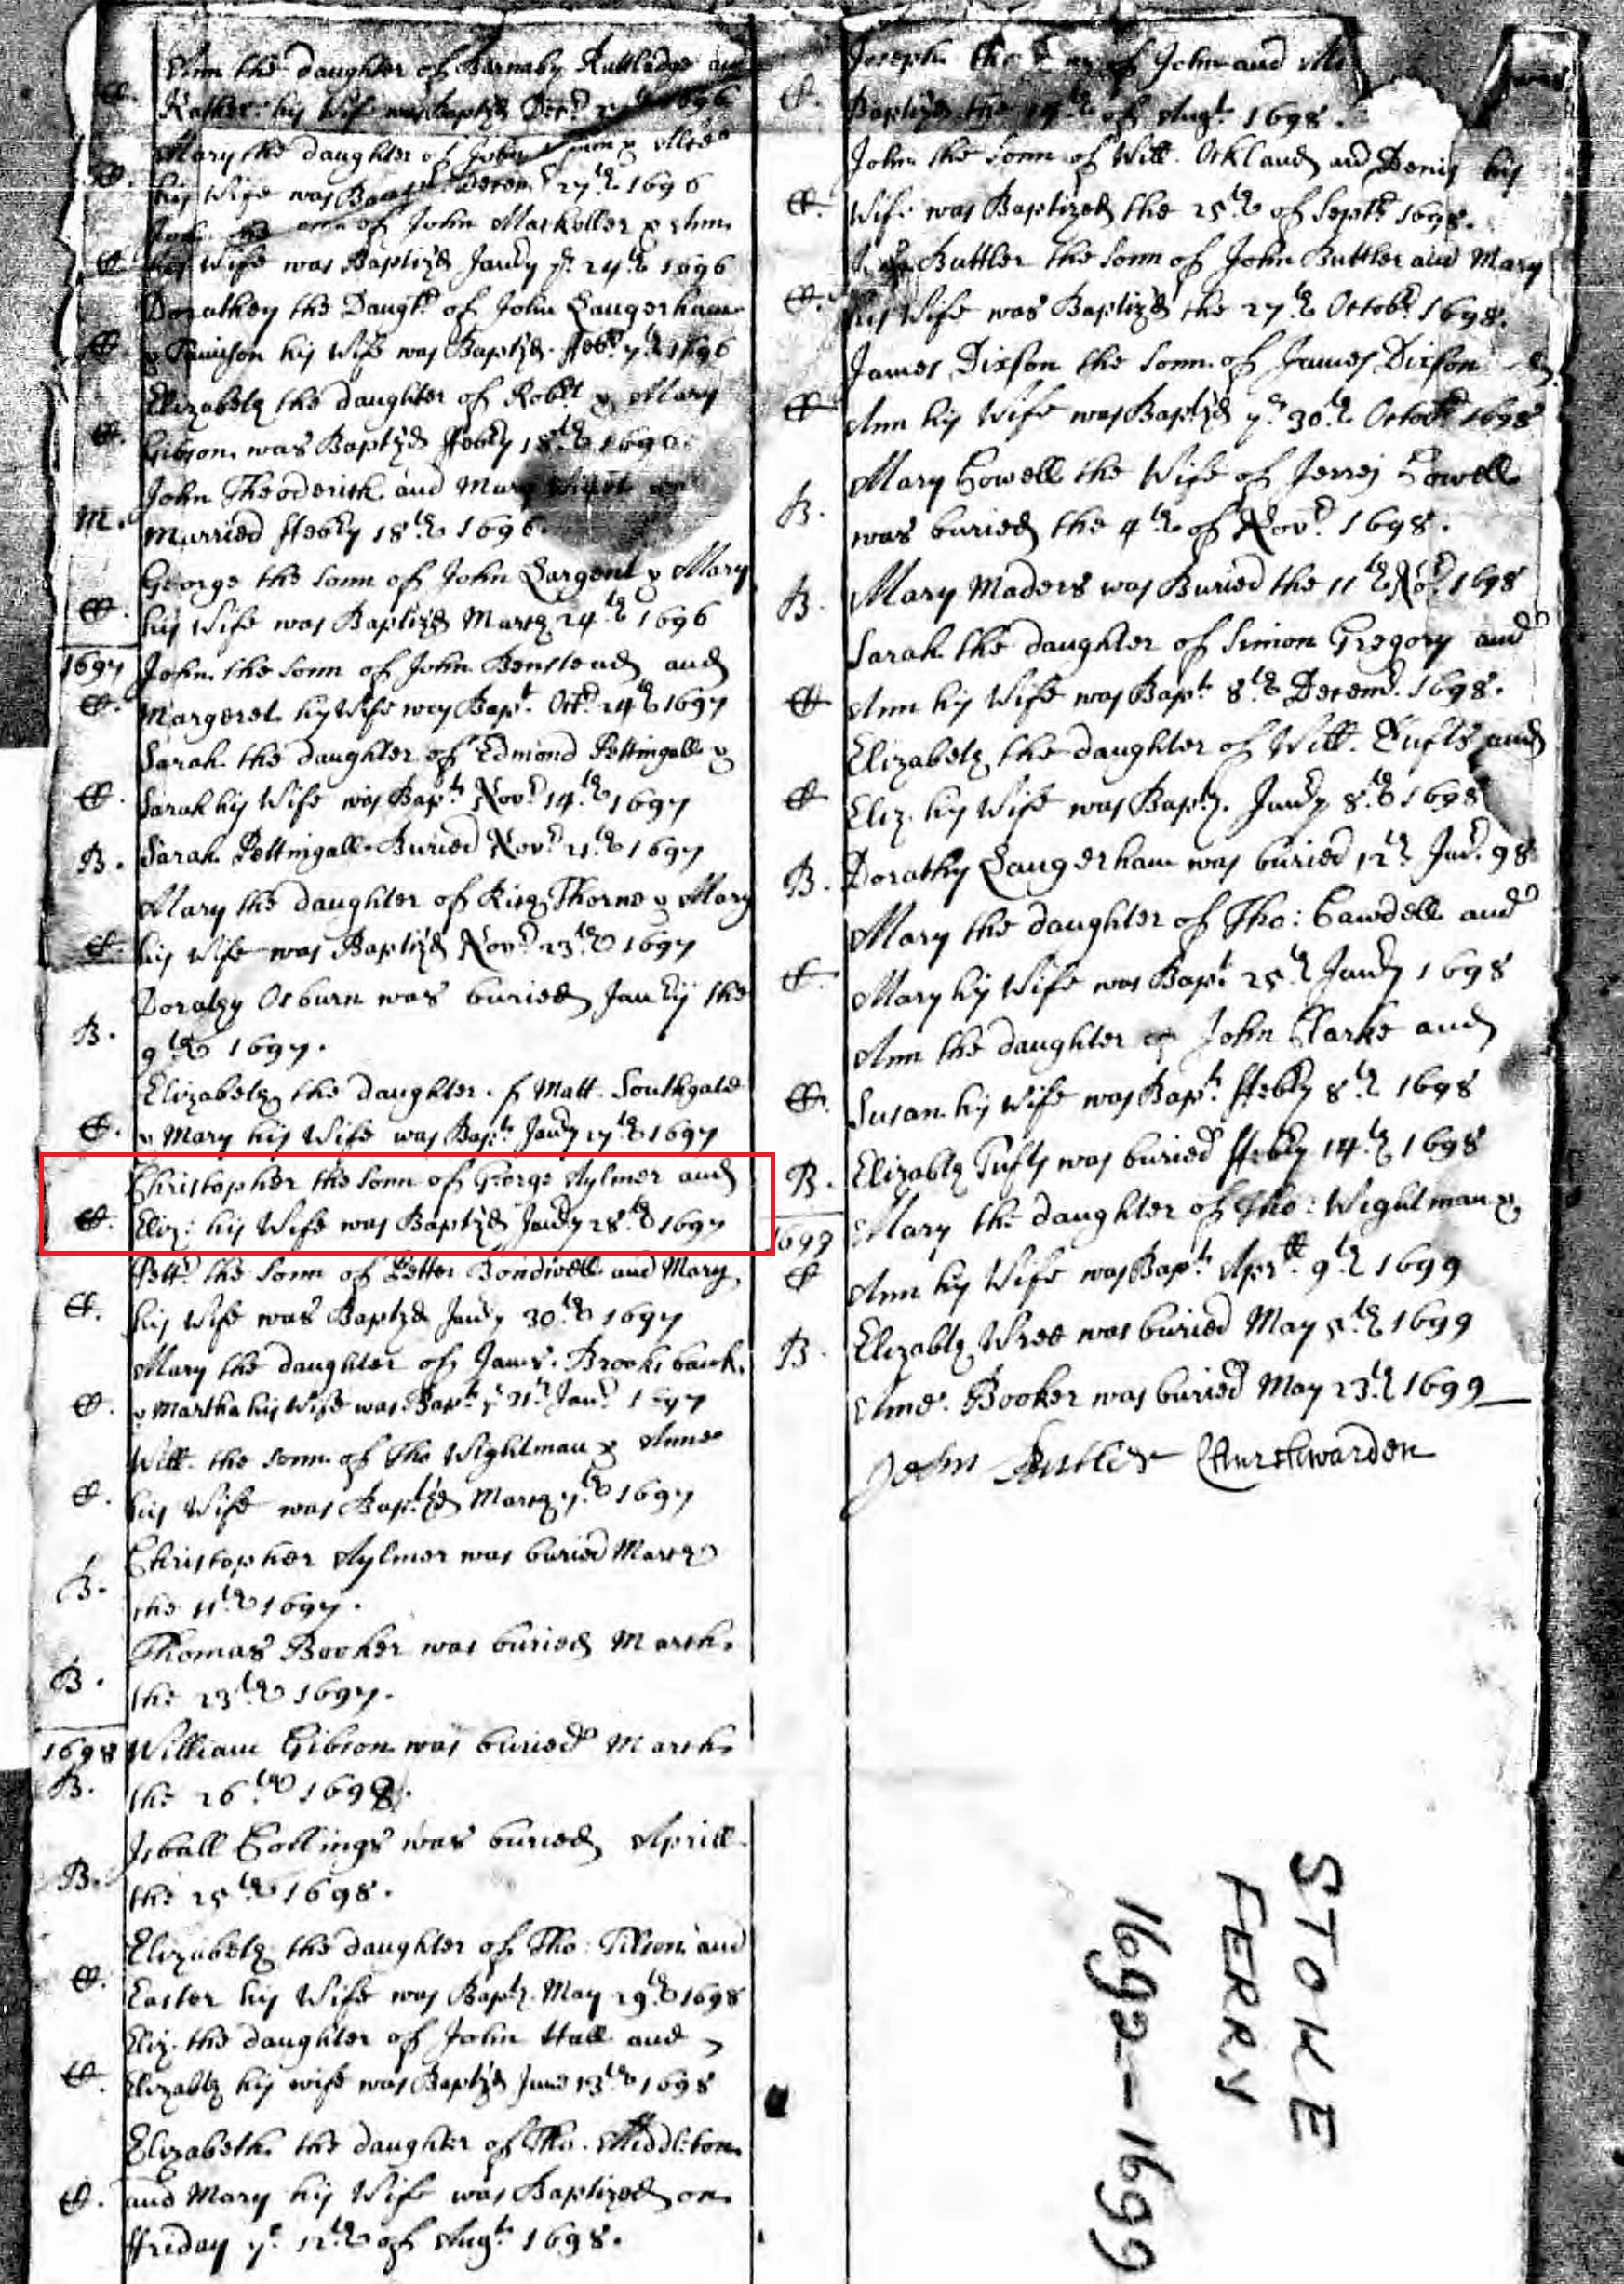 Ann the daughter of Barnaby Ruttlidge and
Kather: his Wife was Baptizd Decr 1696
Mary the daughter of John
his Wife was Decem 27th 1696
of John Markeller & Ann
C. his Wife was Baptizd Jandy ye 24th 1696
Dorathey the Daughtr of John Langerham
C. & Tamison his Wife was Baptizd Feby 7th 1696
Elizabeth the daughter of Robrt & Mary
C. Gibson was Baptizd ffebry 18th 1696
John Theoderick and Mary
M. Married ffebry 18th 1696.
George the Sonn of John Sargent & Mary
C. his Wife was Baptizd March 24th 1696
1697 John the sonn of John Benstead and
C. Margeret his Wife was Bapt. Octr 24th 1697
Sarah the daughter of Edmond Pettingall &
C. Sarah his Wife was Bapt Novr 14th 1697
B. Sarah Pettingall Buried Novr 21th 1697
Mary the daughter of Rich Thorne & Mary
C. his Wife was Baptizd Novr 23th 1697
Dorathy Osburn was buried Janry the
B. 9th 1697.
Elizabeth the daughter of Matt. Southgate
C. & Mary his Wife was Bapt Jandy 17th 1697
Christopher the sonn of George Aylmer and
C. Eliz: his Wife was Baptizd Jandy 28th 1697
Pettr the sonn of Petter Bondwell and Mary
C. his Wife was Baptizd Jandy 30th 1697
Mary the daughter of James Brooksbank
C. & Martha his Wife was Bapt ye 31th Janr 1697
Will. the sonn of Tho Wightman & Anne
C. his Wife was Baptizd March 7th 1697
Christopher Aylmer was buried March
B. the 11th 1697.
Thomas Booker was buried March
B. the 23th 1697.
1698 William Gibson was buried March
B. the 26th 1698.
Isball Collings was buried Aprill
B. the 25th 1698.
Elizabeth the daughter of Tho: Tilson and
C. Easter his Wife was Baptz. May 29th 1698
Eliz. the daughter of John Hall and
C. Elizabth his wife was Baptizd June 13th 1698
Elizabeth the daughter of Tho. Middleton
C. and Mary his Wife was Baptized on
ffriday ye 12th of Augt 1698.
Joseph the of John and
C. Baptized the 14th of Augt 1698.
John the Sonn of Will. Ockland and Denis his
C. Wife was Baptized the 25th of Septr 1698.
Buttler the Sonn of John Buttler and Mary
C. his Wife was Baptizd the 27th Octobr 1698.
James Dixson the Sonn of James Dixson &
C. Ann his Wife was Baptizd ye 30th Octobr 1698
Mary Cowell the Wife of Jerrej Cowell
B. was buried the 4th of Novr 1698.
B. Mary Maders was Buried the 11th Nor 1698
Sarah the daughter of Simon Gregory and
C. Ann his Wife was Bapt 8th Decemr. 1698.
Elizabeth the daughter of Will. Tufts and
C. Eliz. his Wife was Baptz. Jandy 8th 1698
B. Dorathy Langerham was buried 12th Jar. 98
Mary the daughter of Tho: Cawdell and
C. Mary his Wife was Bapt 25th Jandy 1698
Ann the daughter of John Clarke and
C. Susan his Wife was Bapt ffebry 8th 1698
B. Elizabth Tufts was buried ffebry 14th 1698
Mary the daughter of Tho: Wightman &
1699
C. Ann his Wife was Bapt Aprll 9th 1699
B. Elizabth Wree was buried May 5th 1699
Anne Booker was buried May 23th 1699
John Butler Churchwarden
STOKE
FERRY
1692-1699